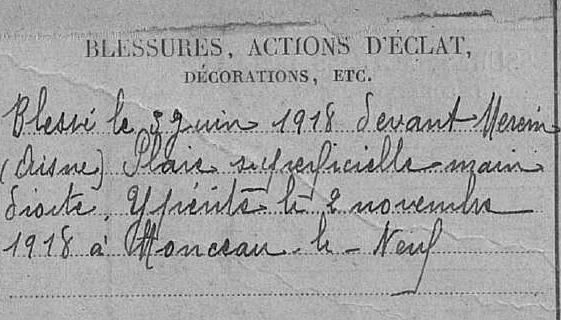 BLESSURES, ACTIONS D'ÉCLAT,
DÉCORATIONS, ETC.
Blessé le 5 juin 1918 devant Mercin
(Aisne) Plaie superficielle main
droite, Ypérité le 2 novembre
1918 à Monceau-le-Neuf